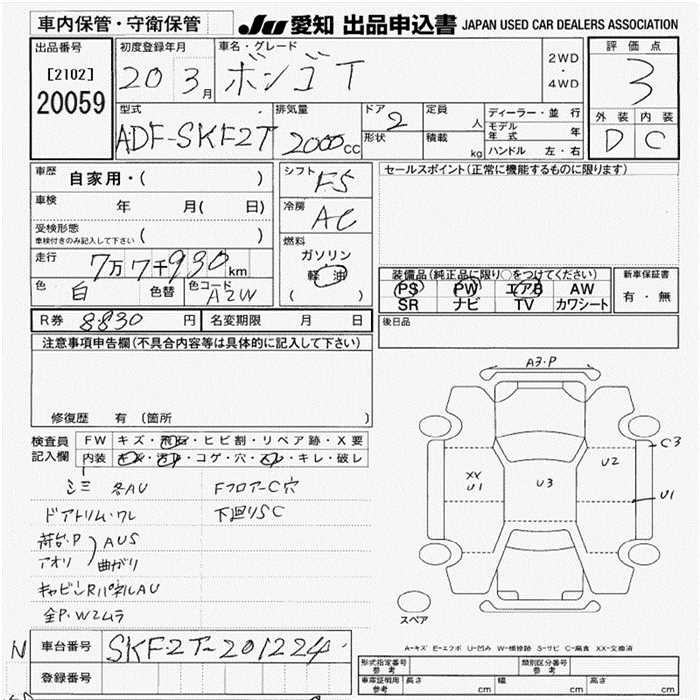 車内保管・守衛保管
JU 愛知 出品申込書 JAPAN USED CAR DEALERS ASSOCIATION
出品番号 [2102] 20059
初度登録年月 20 3月
車名・グレード ボンゴT
2WD・4WD
評価点 3
外装 D 内装 C
型式 ADF-SKF2T
排気量 2000cc
ドア 2 形状
定員 人 積載 kg
ディーラー・並行
モデル年式 年
ハンドル 左・右
車歴 自家用・( )
車検 年 月( 日)
受検形態 車検付きのみ記入して下さい ( )
走行 7万7千930km
色 白 色替 色コード A2W
シフト F5
冷房 AC
燃料 ガソリン 軽油 ( )
セールスポイント(正常に機能するものに限ります)
装備品(純正品に限り○をつけてください)
PS PW エアB AW
SR ナビ TV カワシート
新車保証書 有・無
R券 8830円 名変期限 月 日
後日品
注意事項申告欄(不具合内容等は具体的に記入して下さい)
修復歴 有 (箇所
検査員記入欄
FW キズ・飛石・ヒビ割・リペア跡・X要
内装 キズ・汚れ・コゲ・穴・スレ・キレ・破レ
シミ 各AU Fフロアー C穴
ドアトリム・ワレ 下廻りSC
荷台・P AUS
アオリ 曲がり
キャビンRパネルAU
全P・W2ムラ
A3・P
C3
U2
XX U1
U3
U1
スペア
A-キズ E-エクボ U-凹み W-補修跡 S-サビ C-腐食 XX-交換済
N 車台番号 SKF2T-201224
登録番号
形式指定番号 参考 類別区分番号 参考
車庫証明用 参考 長さ cm 幅 cm 高さ cm